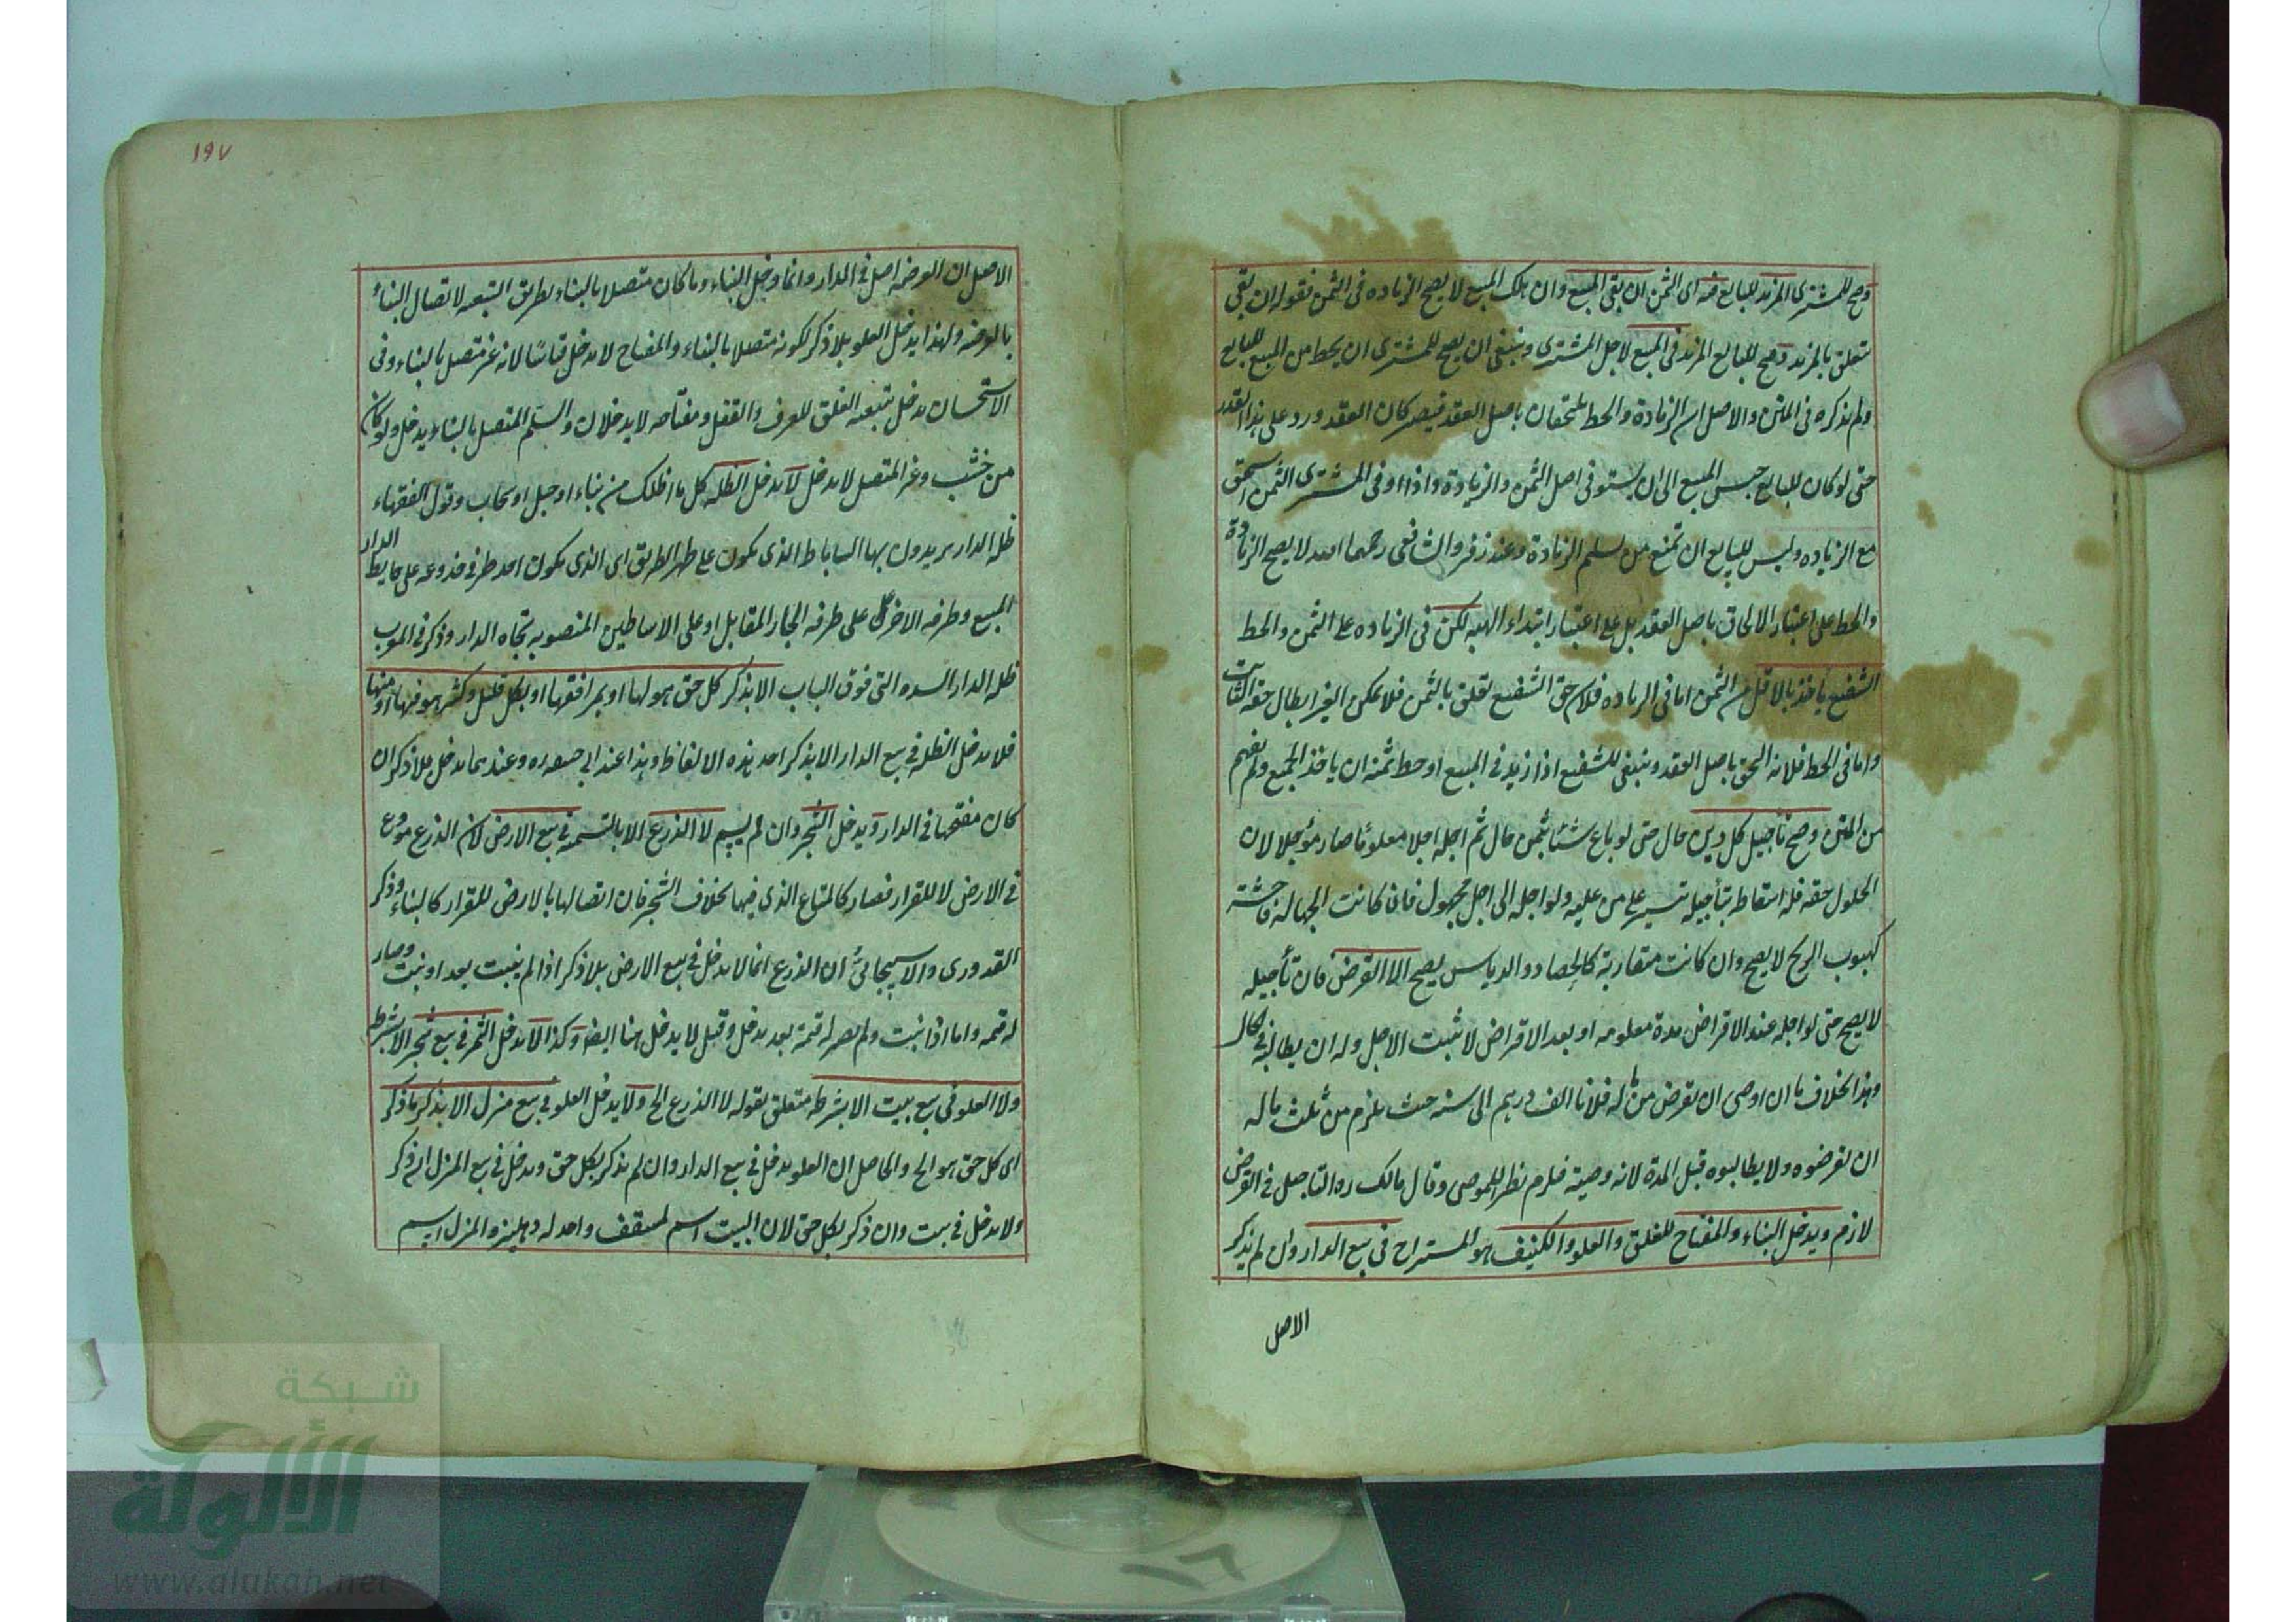 وصح للمشترى المزيد للبايع منه اى الثمن ان بقى المبيع وان هلك المبيع لا يصح الزياده فى الثمن فقوله ان بقى
متعلق بالمزيد وصح للبايع المزيد فى المبيع لاجل المشترى وينبغى ان يصح للمشترى ان يحط من المبيع للبايع
ولم يذكره فى المتن والاصل ان الزيادة والحط يلتحقان باصل العقد فيصير كان العقد ورد على هذا القدر
حتى لو كان للبايع حبس المبيع الى ان يستوفى اصل الثمن والزيادة واذا اوفى المشترى الثمن استحق
مع الزياده وليس للبايع ان تمنع من تسلم الزيادة وعند زفر والشافعى رحمهما الله لا يصح الزيادة
والحط على اعتبار الالحاق باصل العقد بل على اعتبار ابتداء الهبه لكن فى الزياده على الثمن والحط
الشفيع ياخذ بالاقل من الثمن اما فى الزياده فلان حق الشفيع تعلق بالثمن فلا يمكن الغير ابطال حقه الثابت
واما فى الحط فلانه التحق باصل العقد وينبغى للشفيع اذا زيد فى المبيع او حط ثمنه ان ياخذ الجميع ولم يفهم
من المتن وصح تأجيل كل دين حال حتى لو باع شئا بثمن حال ثم اجله اجلا معلوما صار مؤجلا لان
الحلول حقه فله اسقاطه بتأجيله تيسيرا على من عليه ولو اجله الى اجل مجهول فان كانت الجهالة فاحشة
كهبوب الريح لا يصح وان كانت متقاربة كالحصاد والدياس يصح الا القرض فان تأجيله
لا يصح حتى لو اجله عند الاقراض مدة معلومه او بعد الاقراض لا يثبت الاجل وله ان يطالبه فى الحال
وهذا بخلاف ما ان اوصى ان يقرض من ماله فلانا الف درهم الى سنه حيث يلزم من ثلث ماله
ان يقرضوه ولا يطالبوه قبل المدة لانه وصية فلزم نظرا للموصى وقال مالك ره التاجيل فى القرض
لازم ويدخل البناء والمفتاح للغلق والعلو والكنيف هو المستراح فى بيع الدار وان لم يذكر
الاصل
١٩٧
الاصل ان العرصه اصل فى الدار وانما دخل البناء وما كان متصلا بالبناء بطريق التبعيه لاتصال البناء
بالعرصه ولهذا يدخل العلو بلا ذكر لكونه متصلا بالبناء والمفتاح لا يدخل قياسا لانه غير متصل بالبناء وفى
الاستحسان يدخل بتبعية الغلق للعرف والقفل ومفتاحه لا يدخلان والسلم المتصل بالبناء يدخل ولو كان
من خشب وغير المتصل لا يدخل لا يدخل الظله كل ما اظلك من بناء او جبل او سحاب وقول الفقهاء
ظله الدار يريدون بها الساباط الذى يكون على ظهر الطريق اى الذى يكون احد طرفى جذوعه على حايط الدار
المبيع وطرفه الاخر على طرفه الجار المقابل او على الاساطين المنصوبه تجاه الدار وذكر فى المغرب
ظله الدار السده التى فوق الباب الا بذكر كل حق هو لها او بمرافقها او بكل قليل وكثير هو فيها او منها
فلا يدخل الظله فى بيع الدار الا بذكر احد هذه الالفاظ وهذا عند ابى حنيفه ره وعندهما يدخل بلا ذكر ان
كان مفتحها فى الدار ويدخل الشجر وان لم يسم لا الذرع الا بالتسمية فى بيع الارض لان الذرع مودع
فى الارض لا للقرار فصار كالمتاع الذى فيها بخلاف الشجر فان اتصالها بالارض للقرار كالبناء وذكر
القدورى والاسبيجابى ان الذرع انما لا يدخل فى بيع الارض بلا ذكر اذا لم ينبت بعد او نبت وصار
له قيمه واما اذا نبت ولم يصر له قيمة بعد يدخل وقيل لا يدخل هنا ايضا وكذا لا يدخل الثمر فى بيع شجر الا بشرط
ولا العلو فى بيع بيت الا بشرطه متعلق بقوله لا الذرع الخ ولا يدخل العلو فى بيع منزل الا بذكر ما ذكر
اى كل حق هو الخ والحاصل ان العلو يدخل فى بيع الدار وان لم يذكر بكل حق ويدخل فى بيع المنزل ان ذكر
ولا يدخل فى بيت وان ذكر بكل حق لان البيت اسم لمسقف واحد له دهليز والمنزل اسم
شبكة
الألوكة
www.alukah.net